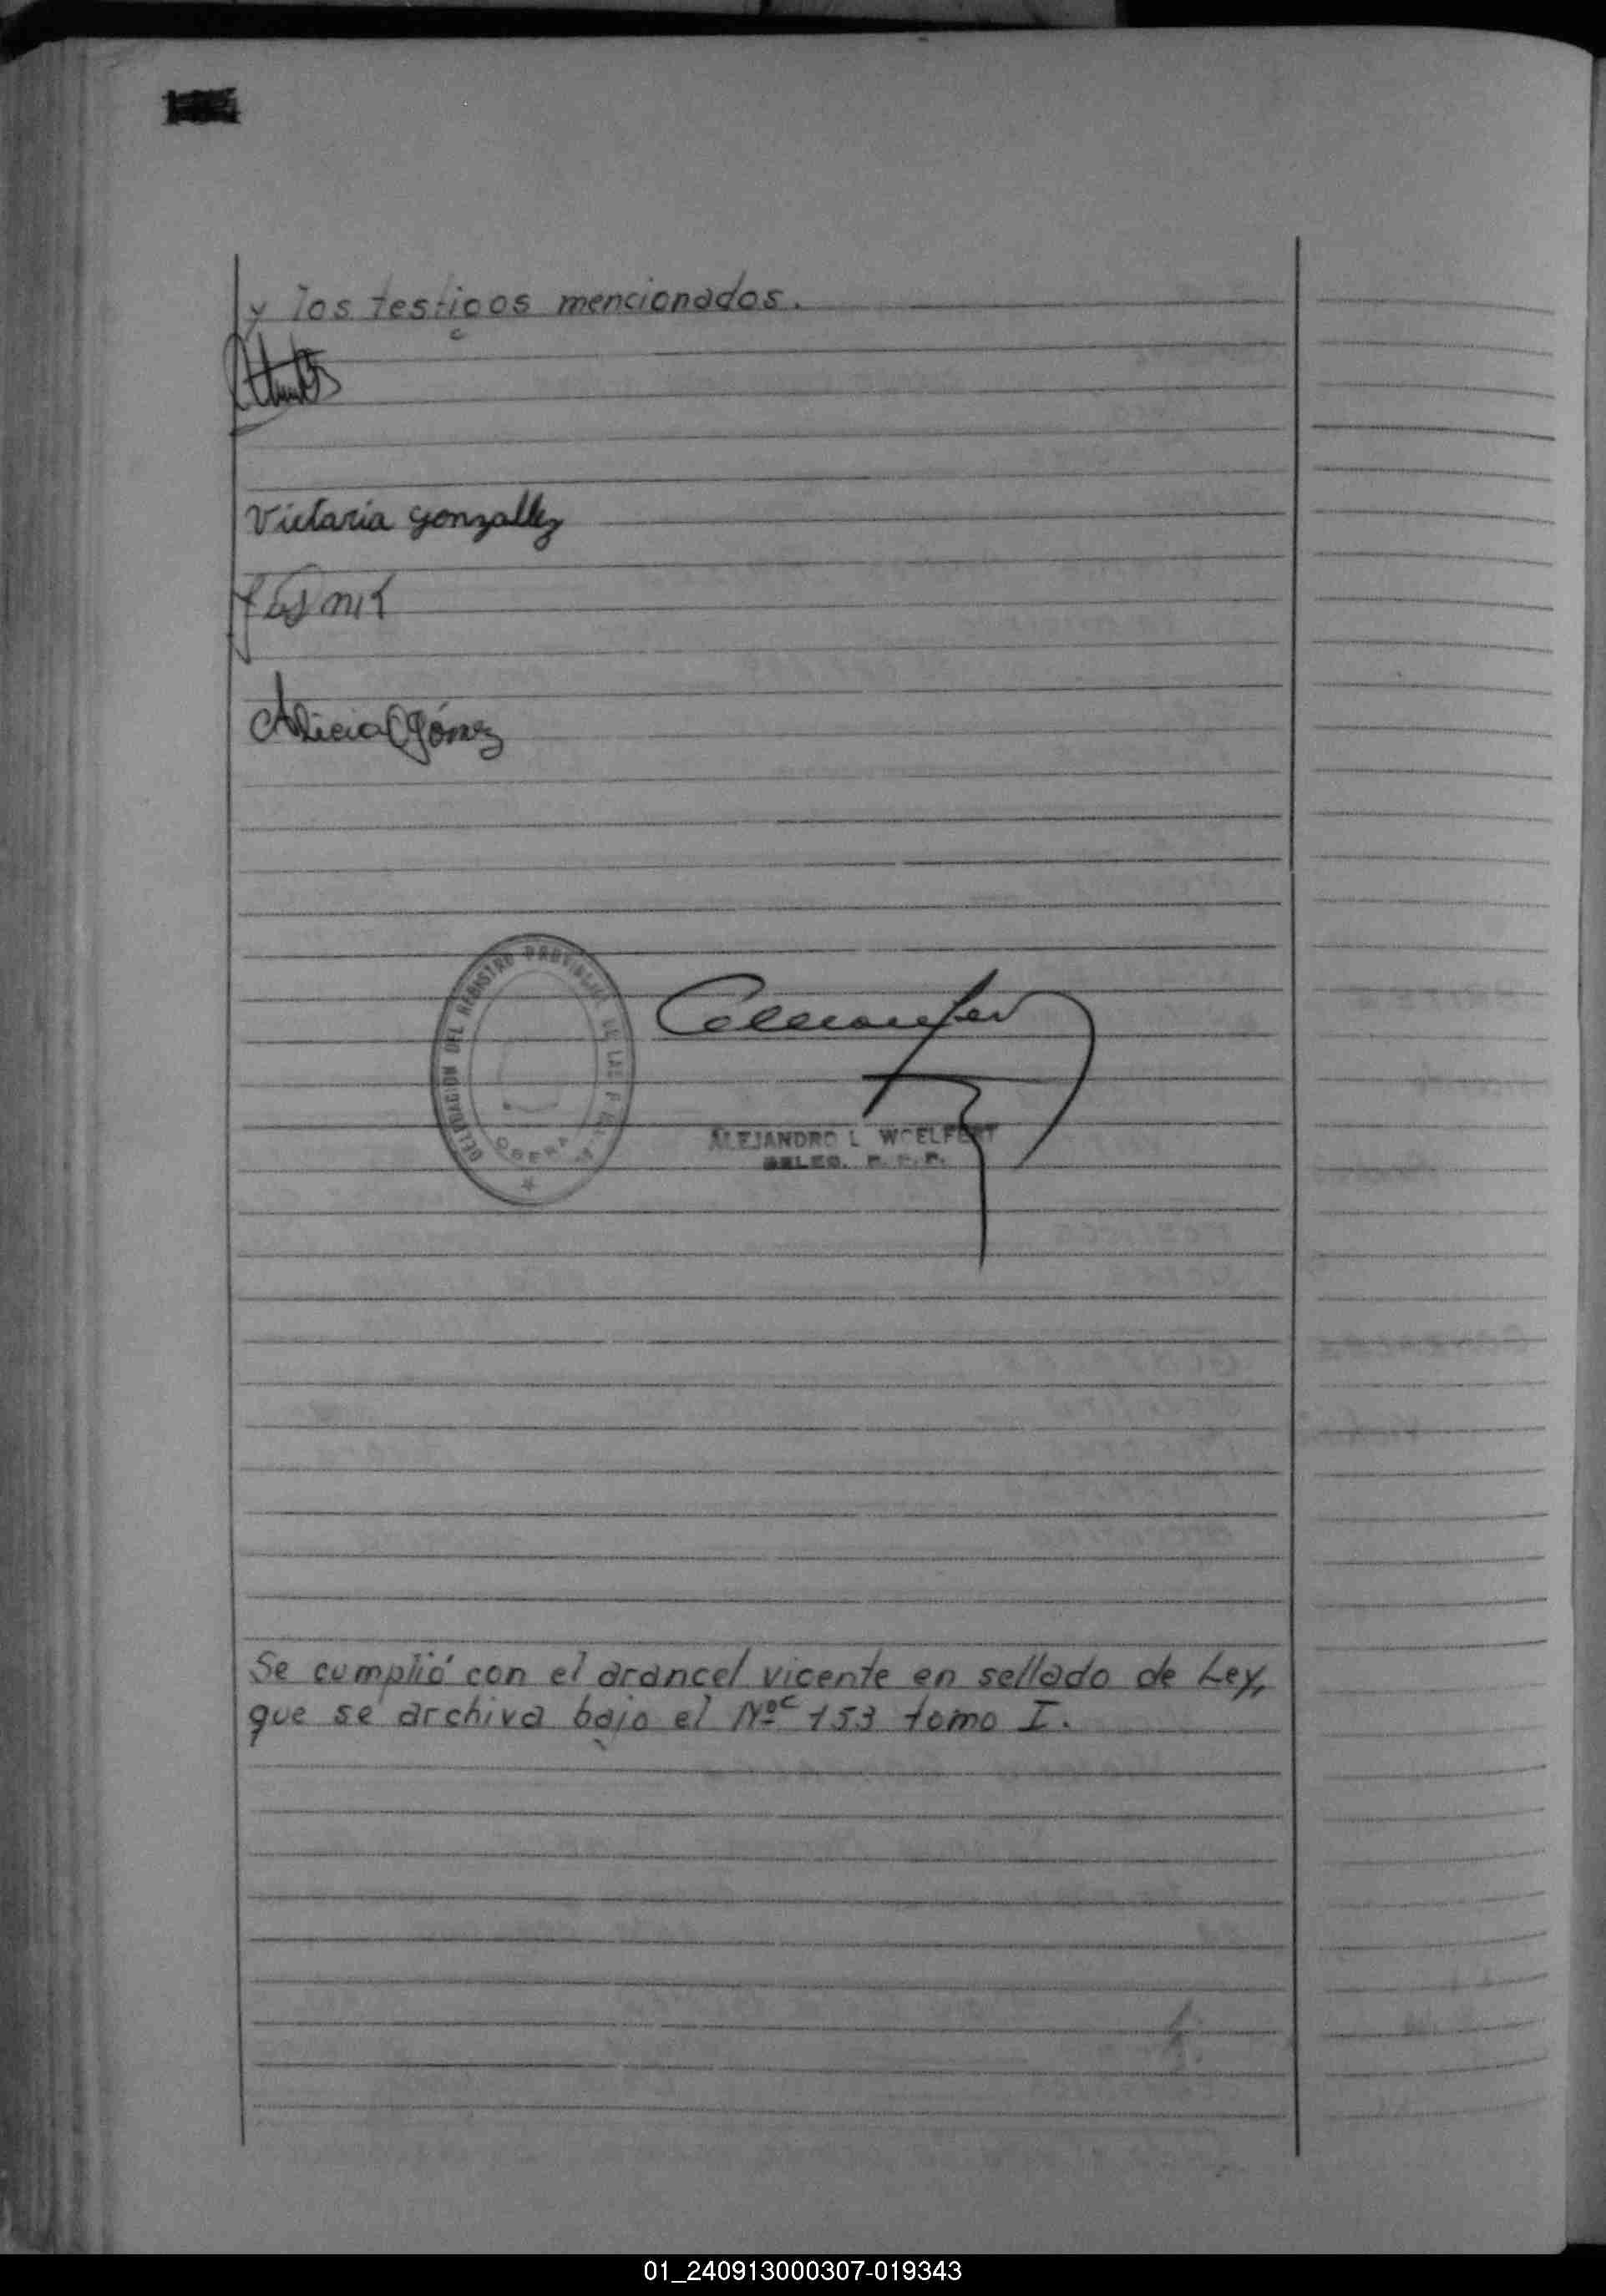 y los testigos mencionados.
Victaria gonzallez
Alicia Gómez
DELEGACION DEL REGISTRO PROVINCIAL DE LAS
OBERA
ALEJANDRO L WOELFERT
DELEG. R. P. P.
Se cumplió con el arancel vicente en sellado de Ley,
que se archiva bajo el Nº 153 tomo I.
01_240913000307-019343